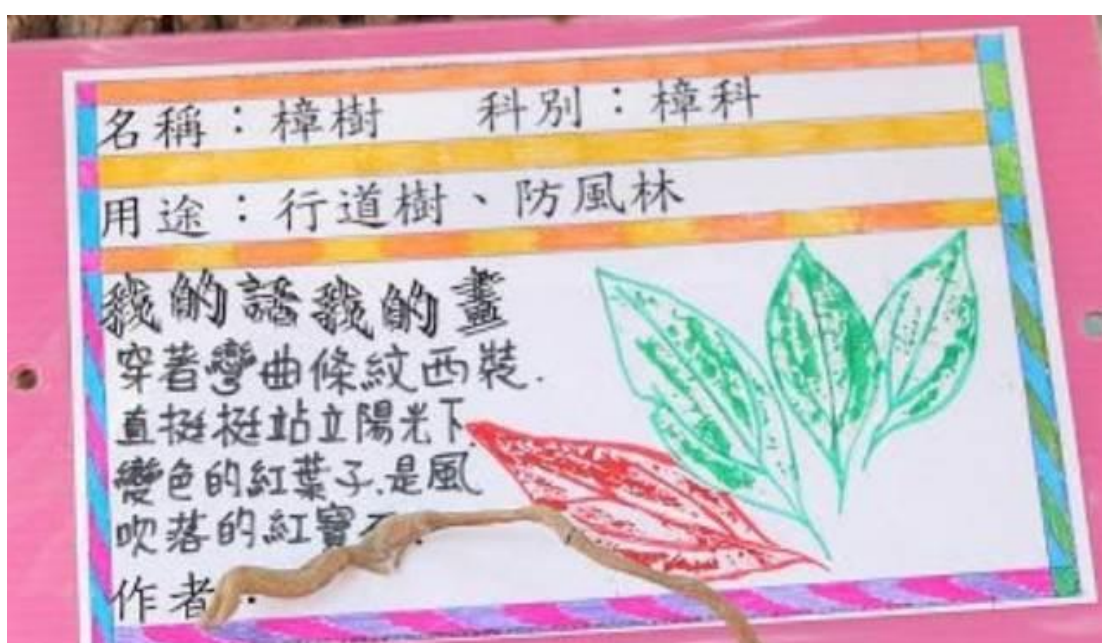 名稱：樟樹　科別：樟科
用途：行道樹、防風林
我的話我的畫
穿著彎曲條紋西裝.
直挺挺站立陽光下.
變色的紅葉子.是風
吹落的紅寶
作者：